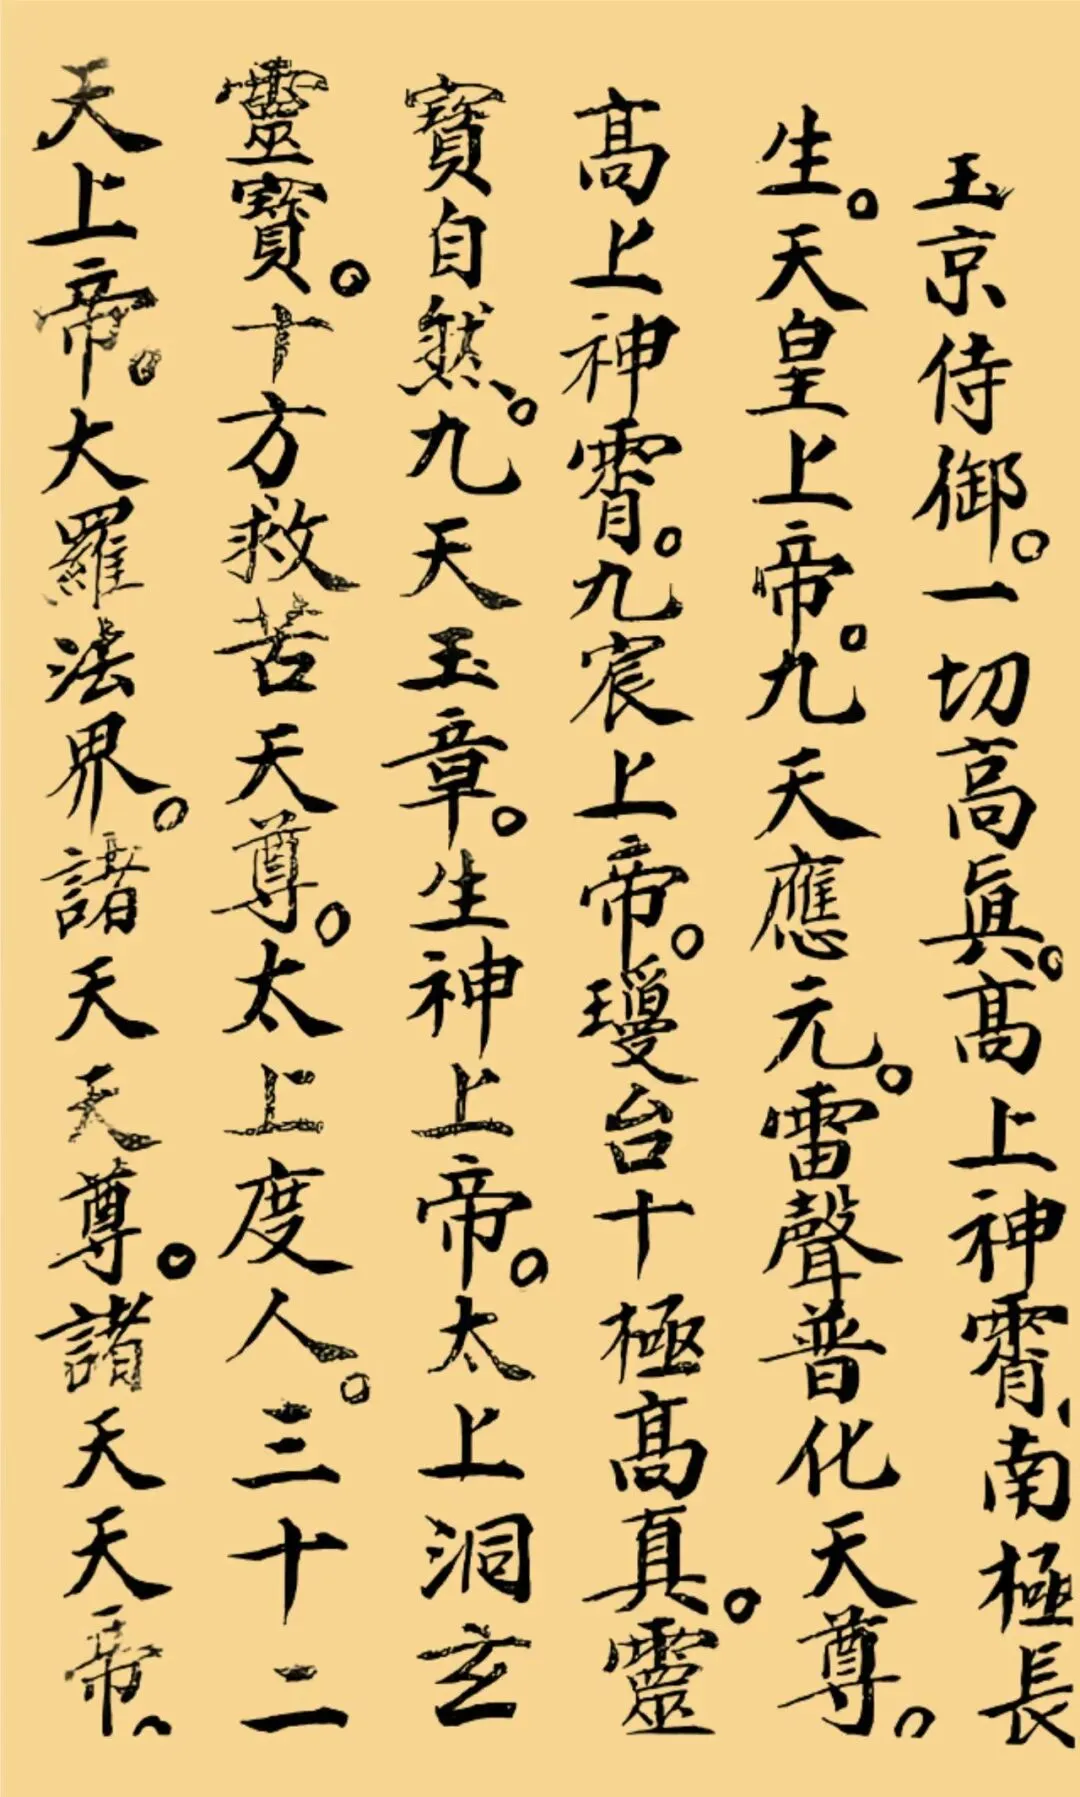 玉京侍御。一切高眞。高上神霄、南極長
生。天皇上帝。九天應元。雷聲普化天尊。
高上神霄。九宸上帝。瓊台十極高真。靈
寶自然。九天玉章。生神上帝。太上洞玄
靈寶。十方救苦天尊。太上度人。三十二
天上帝。大羅法界。諸天天尊。諸天天帝、